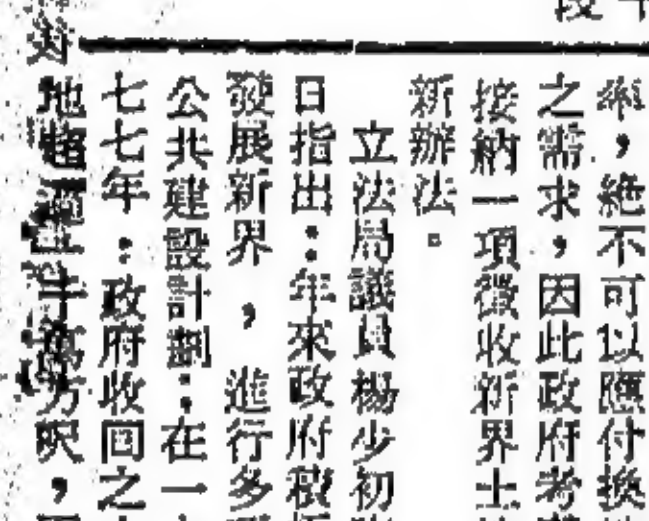 率，絶不可以應付換
之需求，因此政府考
接納一項徵收新界土
新辦法。
立法局議員楊少初
日指出：年來政府積極
發展新界，進行多
公共建設計劃：在一
七七年：政府收回之
地超過二千萬方呎，